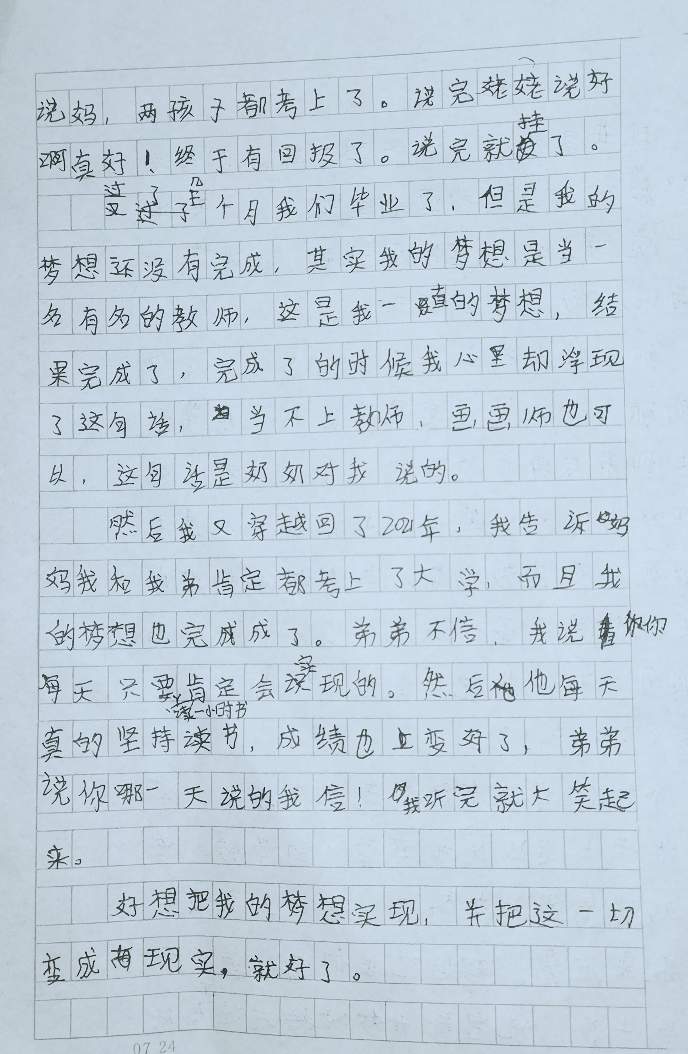 说妈，两孩子都考上了。说完姥姥说好
啊真好！终于有回报了。说完就挂了。
又过了几个月我们毕业了，但是我的
梦想还没有完成，其实我的梦想是当一
名有名的教师，这是我一直的梦想，结
果完成了，完成了的时候我心里却浮现
了这句话，当不上教师，画画师也可
以，这句话是奶奶对我说的。
然后我又穿越回了2021年，我告诉妈
妈我和我弟肯定都考上了大学，而且我
的梦想也完成成了。弟弟不信，我说你
每天只要读一小时书肯定会实现的。然后他每天
真的坚持读书，成绩也变好了，弟弟
说你哪一天说的我信！我听完就大笑起
来。
好想把我的梦想实现，并把这一切
变成现实，就好了。
07 24